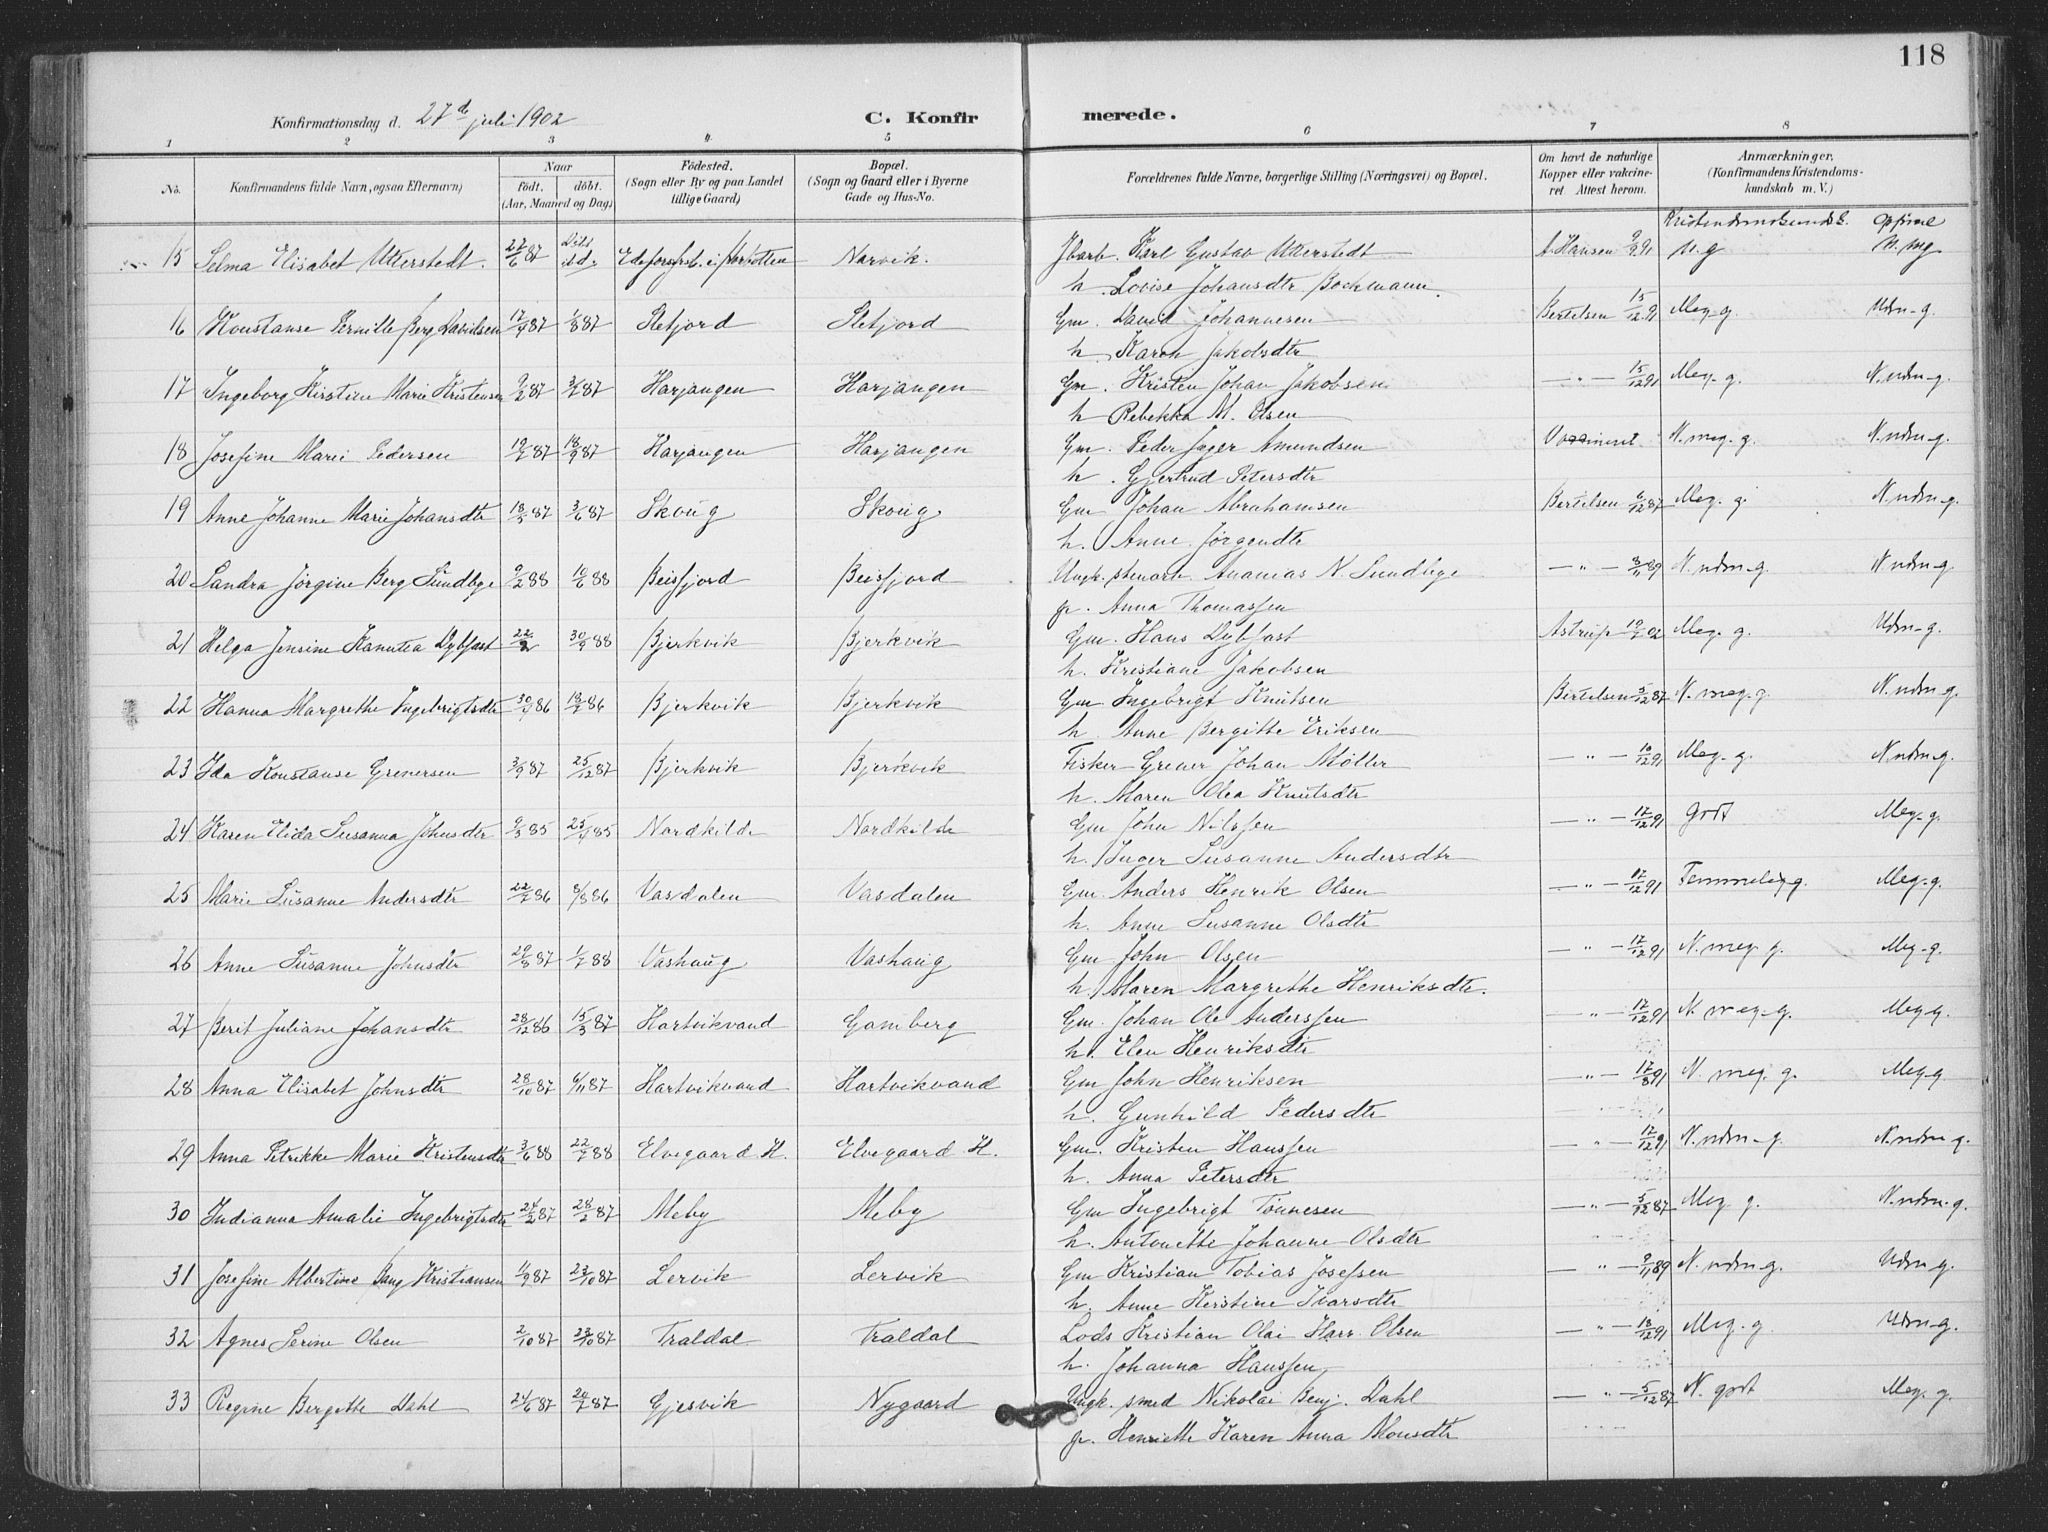 118
Konfirmationsdag d. 27de juli 1902 C. Konfirmerede.
1 2 3 4 5 6 7 8
No. Konfirmandens fulde Navn, ogsaa Efternavn) Naar födt. döbt. (Aar, Maaned og Dag) Födested. (Sogn eller By og paa Landet tillige Gaard) Bopæl. (Sogn og Gaard eller i Byerne Gade og Hus-No. Forældrenes fulde Navne, borgerlige Stilling (Næringsvei) og Bopæl. Om havt de naturlige Kopper eller vakcineret. Attest herom. Anmærkninger, (Konfirmandens Kristendomskundskab m. V.)
Kristendomskundsk. Opførsel
15 Selma Elisabet Utterstedt. 27/6 87 Narvik. Jbarb. Karl Gustav Utterstedt A. Hansen 9/9 91 M. g M. mg
h. Lovise Johansdtr Bochmann.
16 Konstanse Pernille Berg Davidsen 17/4 87 1/8 87 Sletjord Sletjord Gm. David Johannesen Bertelsen 15/12 91 Meg. g. Udm-g.
h. Karen Jakobsdtr
17 Ingeborg Kirstine Marie Kristensen 9/2 87 Harjangen Harjangen Gm. Kristen Johan Jakobsen — " — 15/12 91 Meg. g. N. udm-g.
h Rebekka M. Olsen
18 Josefine Marie Pedersen 19/7 87 18/9 87 Harjangen Harjangen Gm. Peder Jager Amundsen Vaccineret N. meg. g. N. udm-g.
h. Gjertrud Petersdtr
19 Anne Johanne Marie Johansdtr 18/3 87 3/6 87 Skoug Skoug Gm Johan Abrahamsen Bertelsen 6/12 87 Meg. g. N. udm-g.
h. Anne Jørgendtr
20 Sandra Jörgine Berg Sundbye 9/2 88 10/6 88 Beisfjord Beisfjord Ungk. stenarb. Ananias N. Sundbye — " — 8/11 89 N. udm-g. N udm-g.
p. Anna Thomassen
21 Helga Jensine Kanutea Dybfast 22/2 30/9 88 Bjerkvik Bjerkvik Gm. Hans Dybfast Astrup 19/7 02 Meg. g. Udm-g.
h. Kristiane Jakobsen
22 Hanna Margrethe Ingebrigtsdtr 30/4 86 18/7 86 Bjerkvik Bjerkvik Gm. Ingebrigt Knutsen Bertelsen 5/12 87 N. meg. g. N. udm-g.
h. Anne Bergitte Eriksen
23 Ida Konstanse Grenersen 3/9 87 25/12 87 Bjerkvik Bjerkvik Fisker Grener Johan Møller — " — 10/12 91 Meg. g. N. udm-g.
h. Maren Olea Knutsdtr
24 Karen Elida Susanna Johnsdtr 9/3 85 25/4 85 Nordkilde Nordkilde Gm John Nilssen — " — 17/12 91 godt Meg-g.
h. Inger Susanne Andersdtr
25 Marie Susanne Andersdtr 22/7 86 8/8 86 Vasdalen Vasdalen Gm. Anders Henrik Olsen — " — 17/12 91 Temmelig g. Meg-g.
h. Anne Susanne Olsdtr
26 Anne Susanne Johnsdtr 29/8 87 1/7 88 Vashaug Vashaug Gm John Olsen — " — 17/12 91 N. meg. g. Meg-g.
h. Maren Margrethe Henriksdtr.
27 Berit Juliane Johansdtr 28/12 86 15/3 87 Hartvikvand Gamberg Gm. Johan Ole Anderssen — " — 17/12 91 N. meg-g. Meg-g.
h. Elen Henriksdtr
28 Anna Elisabet Johnsdtr 28/10 87 6/11 87 Hartvikvand Hartvikvand Gm John Henriksen — " — 17/8 91 N. meg. g. Meg-g
h. Gunhild Pedersdtr
29 Anna Petrikke Marie Kristensdtr 3/6 88 22/7 88 Elvegaard H. Elvegaard H. Gm. Kristen Hanssen — " — 17/12 91 N. udm-g. N. udm-g.
h. Anna Petersdtr
30 Indianna Amalie Ingebrigtsdtr 24/2 87 28/2 87 Meby Meby Gm Ingebrigt Tönnesen — " — 5/12 87 Meg. g. N. udm-g.
h. Antonette Johanne Olsdtr
31 Josefine Albertine Bang Kristiansen 11/9 87 23/10 87 Lervik Lervik Gm Kristian Tobias Josefsen — " — 9/11 89 N. udm-g. Udm-g.
h. Anne Kerstine Ivarsdtr
32 Agnes Serine Olsen 2/10 87 23/10 87 Traldal Traldal Lods Kristian Olai Harr Olsen — " — 18/12 91 Meg. g Udm-g.
h. Johanna Hanssen
33 Regine Bergitte Dahl 24/6 87 24/7 87 Gjesvik Nygaard Ungk. smed Nikolai Benj. Dahl — " — 5/12 87 N. godt Meg. g.
p. Henriette Karen Anna Monsdtr